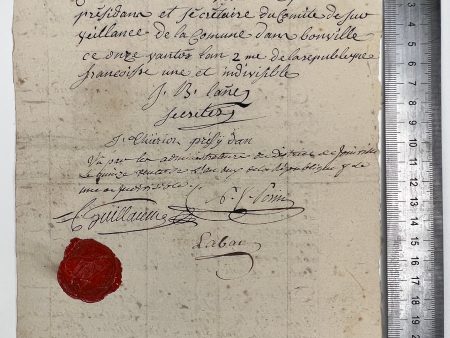 présidans et sécrétaire du Comité de sur
veillance de la Commune dans bonville
ce onze vantos lan 2 me de la republique
francoisse une et indivisible
J. B. Lañe
secreter
J. Thurion présy dan
Vu par les administrateurs du district de Joinville
le quinze ventose l'an deux de la République
une et indivisible
Guillaume
Labar
3
4
5
6
7
8
9
10
11
12
13
14
15
16
17
18
19
20
21